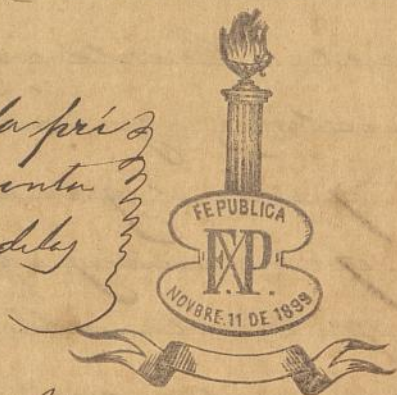 la prí
inta
delas
FEPUBLICA
FXP.
NOVBRE.11 DE 1899